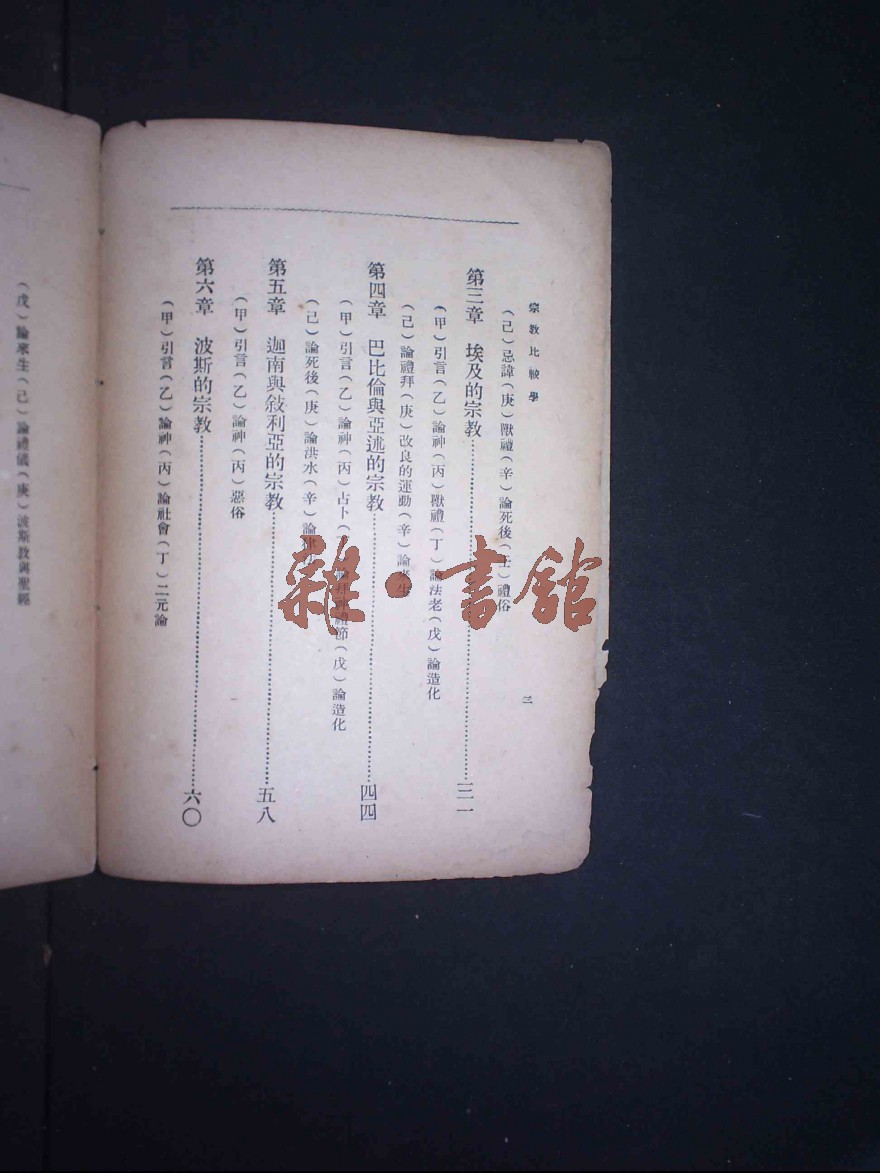 宗教比較學
二
(己)忌諱(庚)獸禮(辛)論死後(壬)禮俗
第三章 埃及的宗教……三一
(甲)引言(乙)論神(丙)獸禮(丁)論法老(戊)論造化
(己)論禮拜(庚)改良的運動(辛)論來生
第四章 巴比倫與亞述的宗教……四四
(甲)引言(乙)論神(丙)占卜(拜神禮節(戊)論造化
(己)論死後(庚)論洪水(辛)論
第五章 迦南與敍利亞的宗教……五八
(甲)引言(乙)論神(丙)惡俗
第六章 波斯的宗教……六〇
(甲)引言(乙)論神(丙)論社會(丁)二元論
(戊)論來生(己)論禮儀(庚)波斯教與聖經
雜·書館